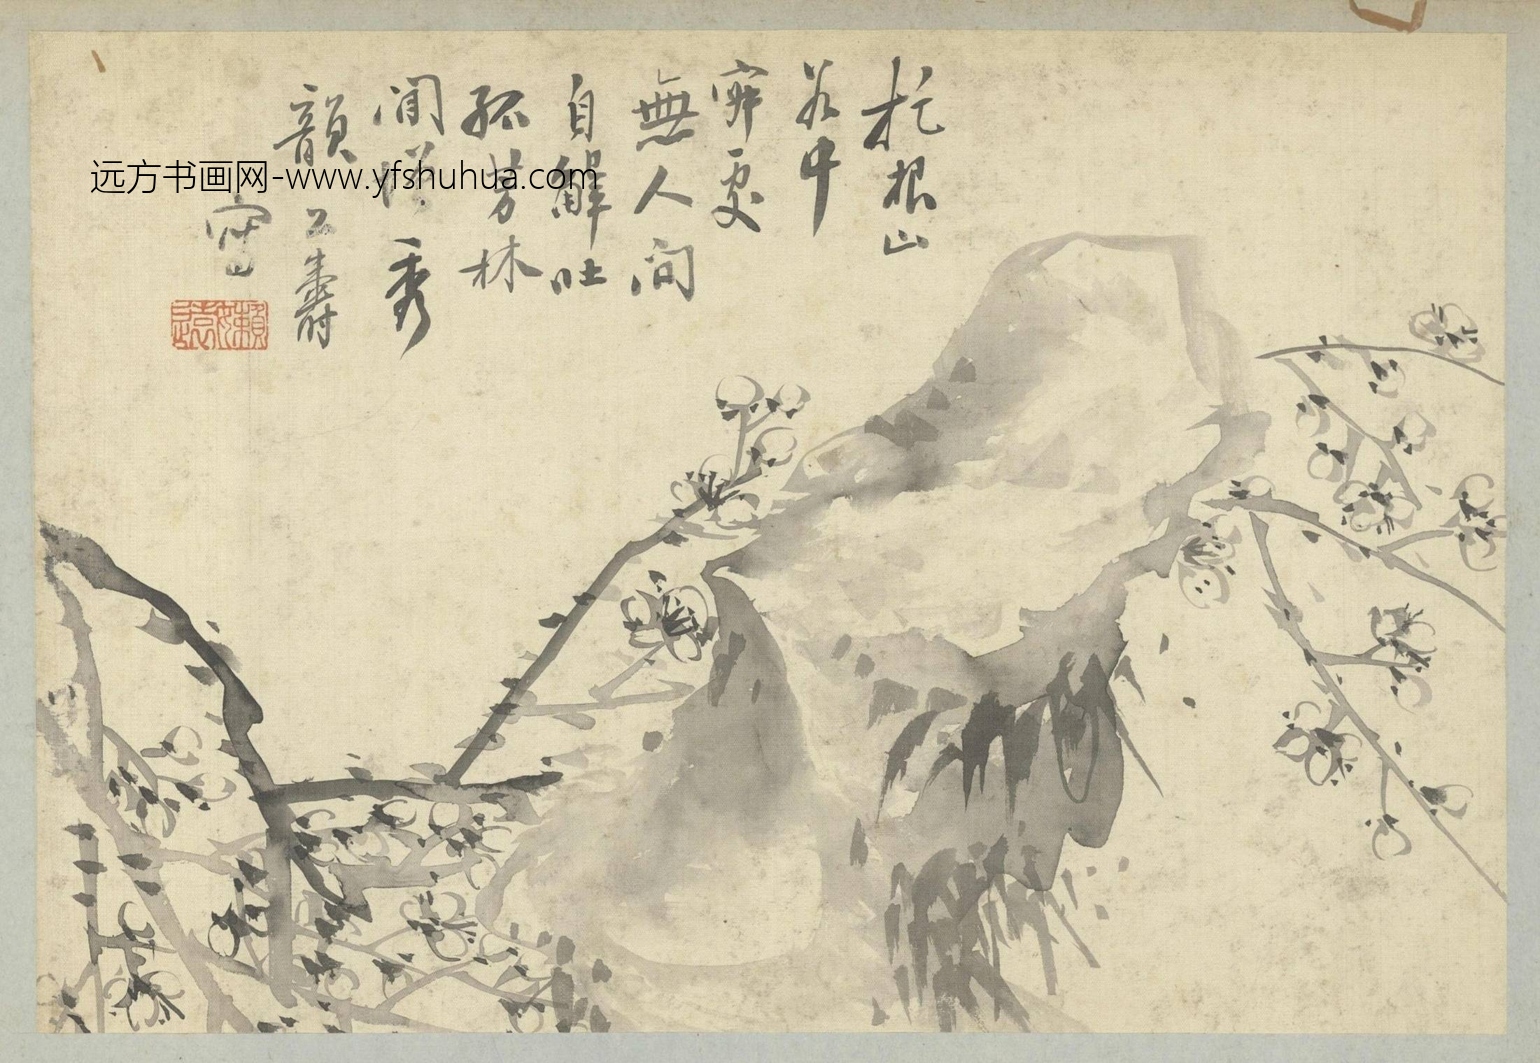 托根山
谷中
處
無人問
自解吐
孤芳林
間增秀
韻公壽
寫
远方书画网-www.yfshuhua.com